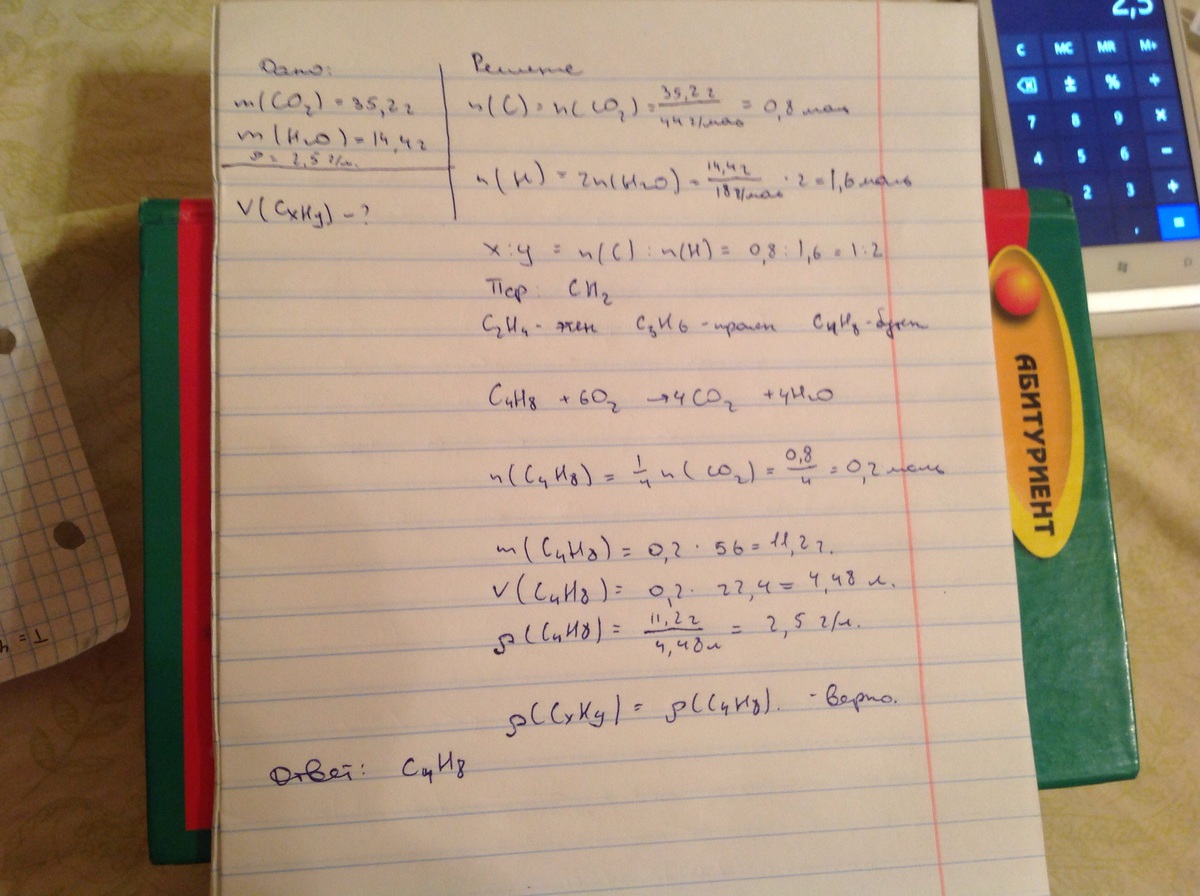 Дано:
m(CO₂) = 35,2 г
m(H₂O) = 14,4 г
ρ = 2,5 г/л.
V(CxHy) - ?
Решение
n(C) = n(CO₂) = 35,2 г / 44 г/моль = 0,8 моль
n(H) = 2n(H₂O) = 14,4 г / 18 г/моль · 2 = 1,6 моль
x : y = n(C) : n(H) = 0,8 : 1,6 = 1 : 2
Пср: CH₂
C₂H₄ - этен C₃H₆ - пропен C₄H₈ - бутен
C₄H₈ + 6O₂ → 4CO₂ + 4H₂O
n(C₄H₈) = 1/4 n(CO₂) = 0,8/4 = 0,2 моль
m(C₄H₈) = 0,2 · 56 = 11,2 г.
V(C₄H₈) = 0,2 · 22,4 = 4,48 л.
ρ(C₄H₈) = 11,2 г / 4,48 л = 2,5 г/л.
ρ(CxHy) = ρ(C₄H₈). - верно.
Ответ: C₄H₈
АБИТУРИЕНТ
2,5
C MC MR M+
± % ÷
7 8 9 ×
4 5 6 −
2 3 +
, =
T = 4